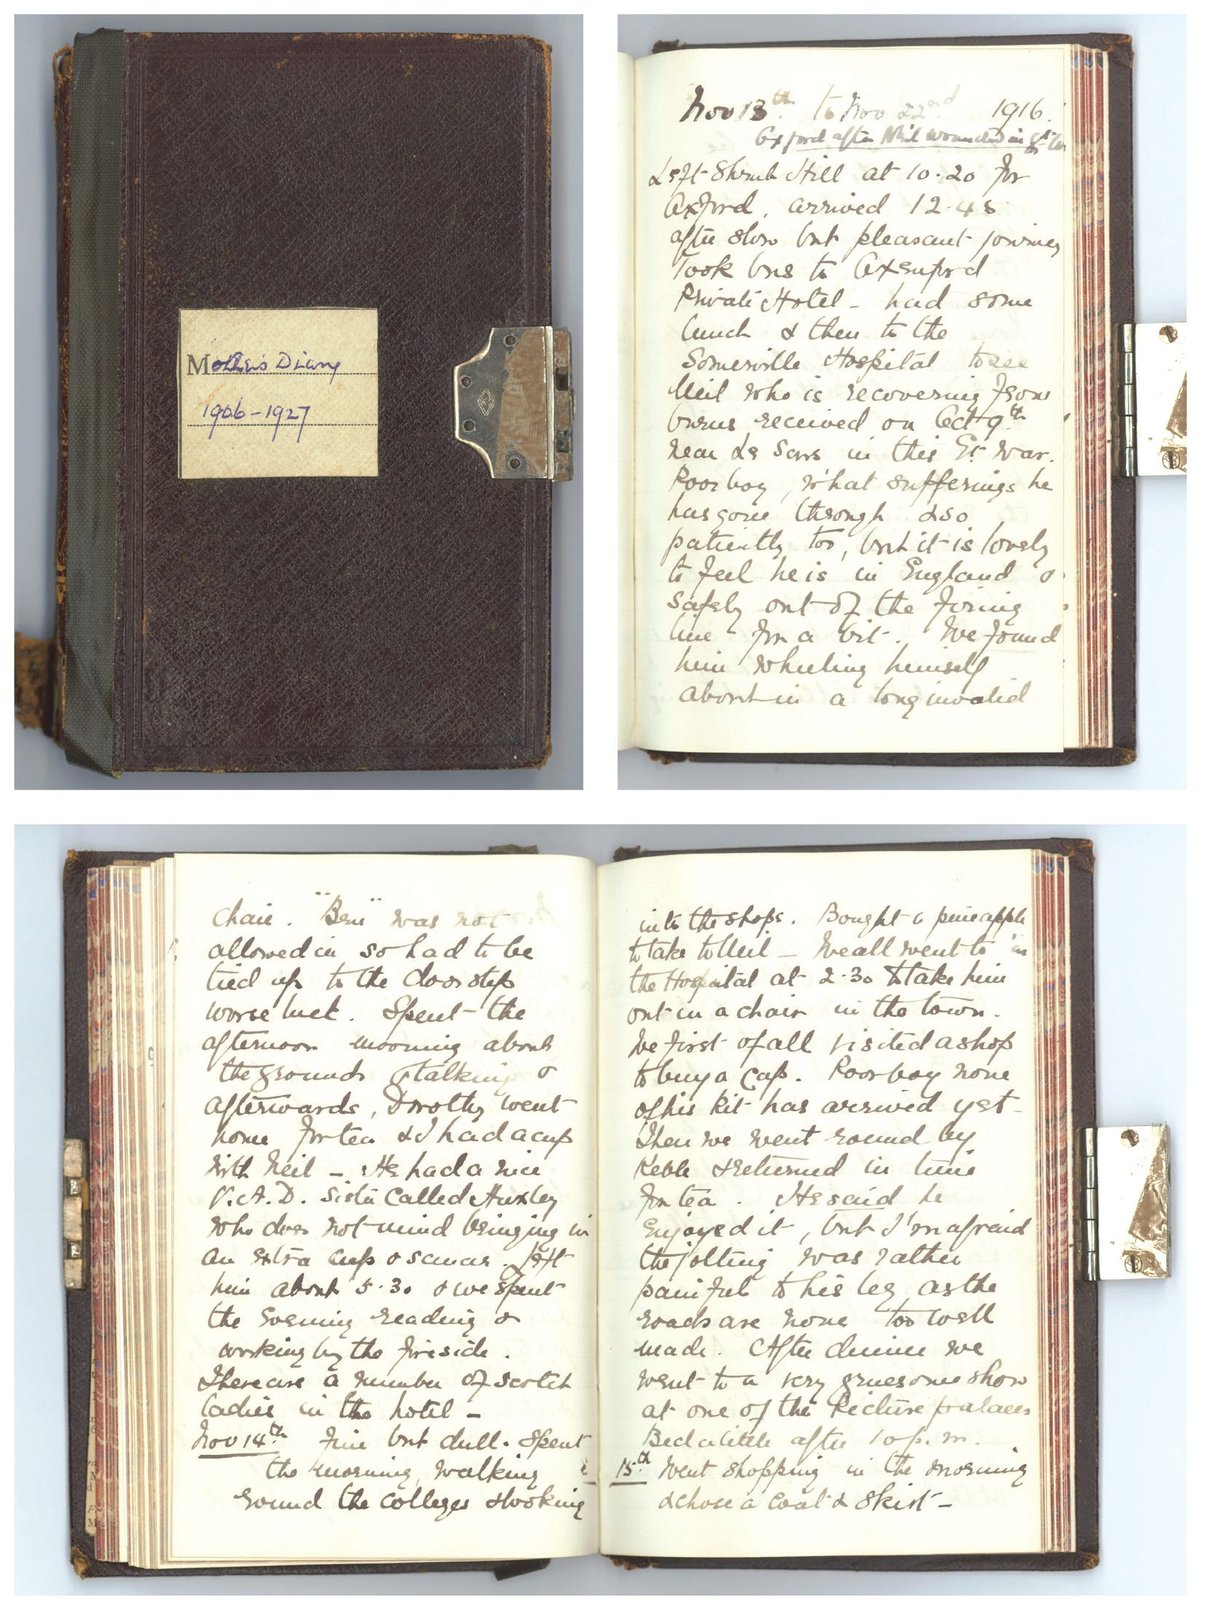 Mother's Diary
1906-1927
Nov 13th to Nov 22nd 1916.
Oxford after Neil wounded in Gt War
Left Shrub Hill at 10.20 for
Oxford, arrived 12.45
after slow but pleasant journey
Took bus to Oxenford
Private Hotel - had some
lunch & then to the
Somerville Hospital to see
Neil who is recovering from
burns received on Oct 9th
near Le Sars in this Gt War.
Poor boy, what sufferings he
has gone through & so
patiently too, but it is lovely
to feel he is in England &
safely out of the firing
line for a bit. We found
him wheeling himself
about in a long invalid
chair. "Ben" was not
allowed in so had to be
tied up to the doorstep
worse luck. Spent the
afternoon mooning about
the grounds talking &
afterwards, Dorothy went
home for tea & I had a cup
with Neil - He had a nice
V.A.D. Sister called Huxley
who does not mind bringing in
an extra cup & saucer. Left
him about 5.30 & we spent
the evening reading &
working by the fireside.
There are a number of Scotch
ladies in the hotel -
Nov 14th Fine but dull. Spent
the morning, walking
round the colleges & looking
into the shops. Bought a pineapple
to take to Neil - We all went to
the Hospital at 2.30 to take him
out in a chair in the town.
We first of all visited a shop
to buy a cap. Poor boy none
of his kit has arrived yet -
Then we went round by
Keble & returned in time
for tea. He said he
enjoyed it, but I'm afraid
the jolting was rather
painful to his leg, as the
roads are none too well
made. After dinner we
went to a very gruesome show
at one of the Picture palaces
Bed a little after 10 p.m.
15th Went shopping in the morning
& chose a coat & skirt -